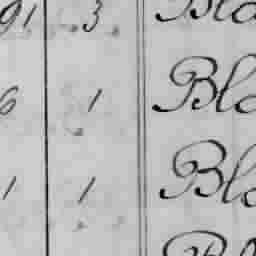 91 3 Bla
6 1 Bla
1 1 Bla